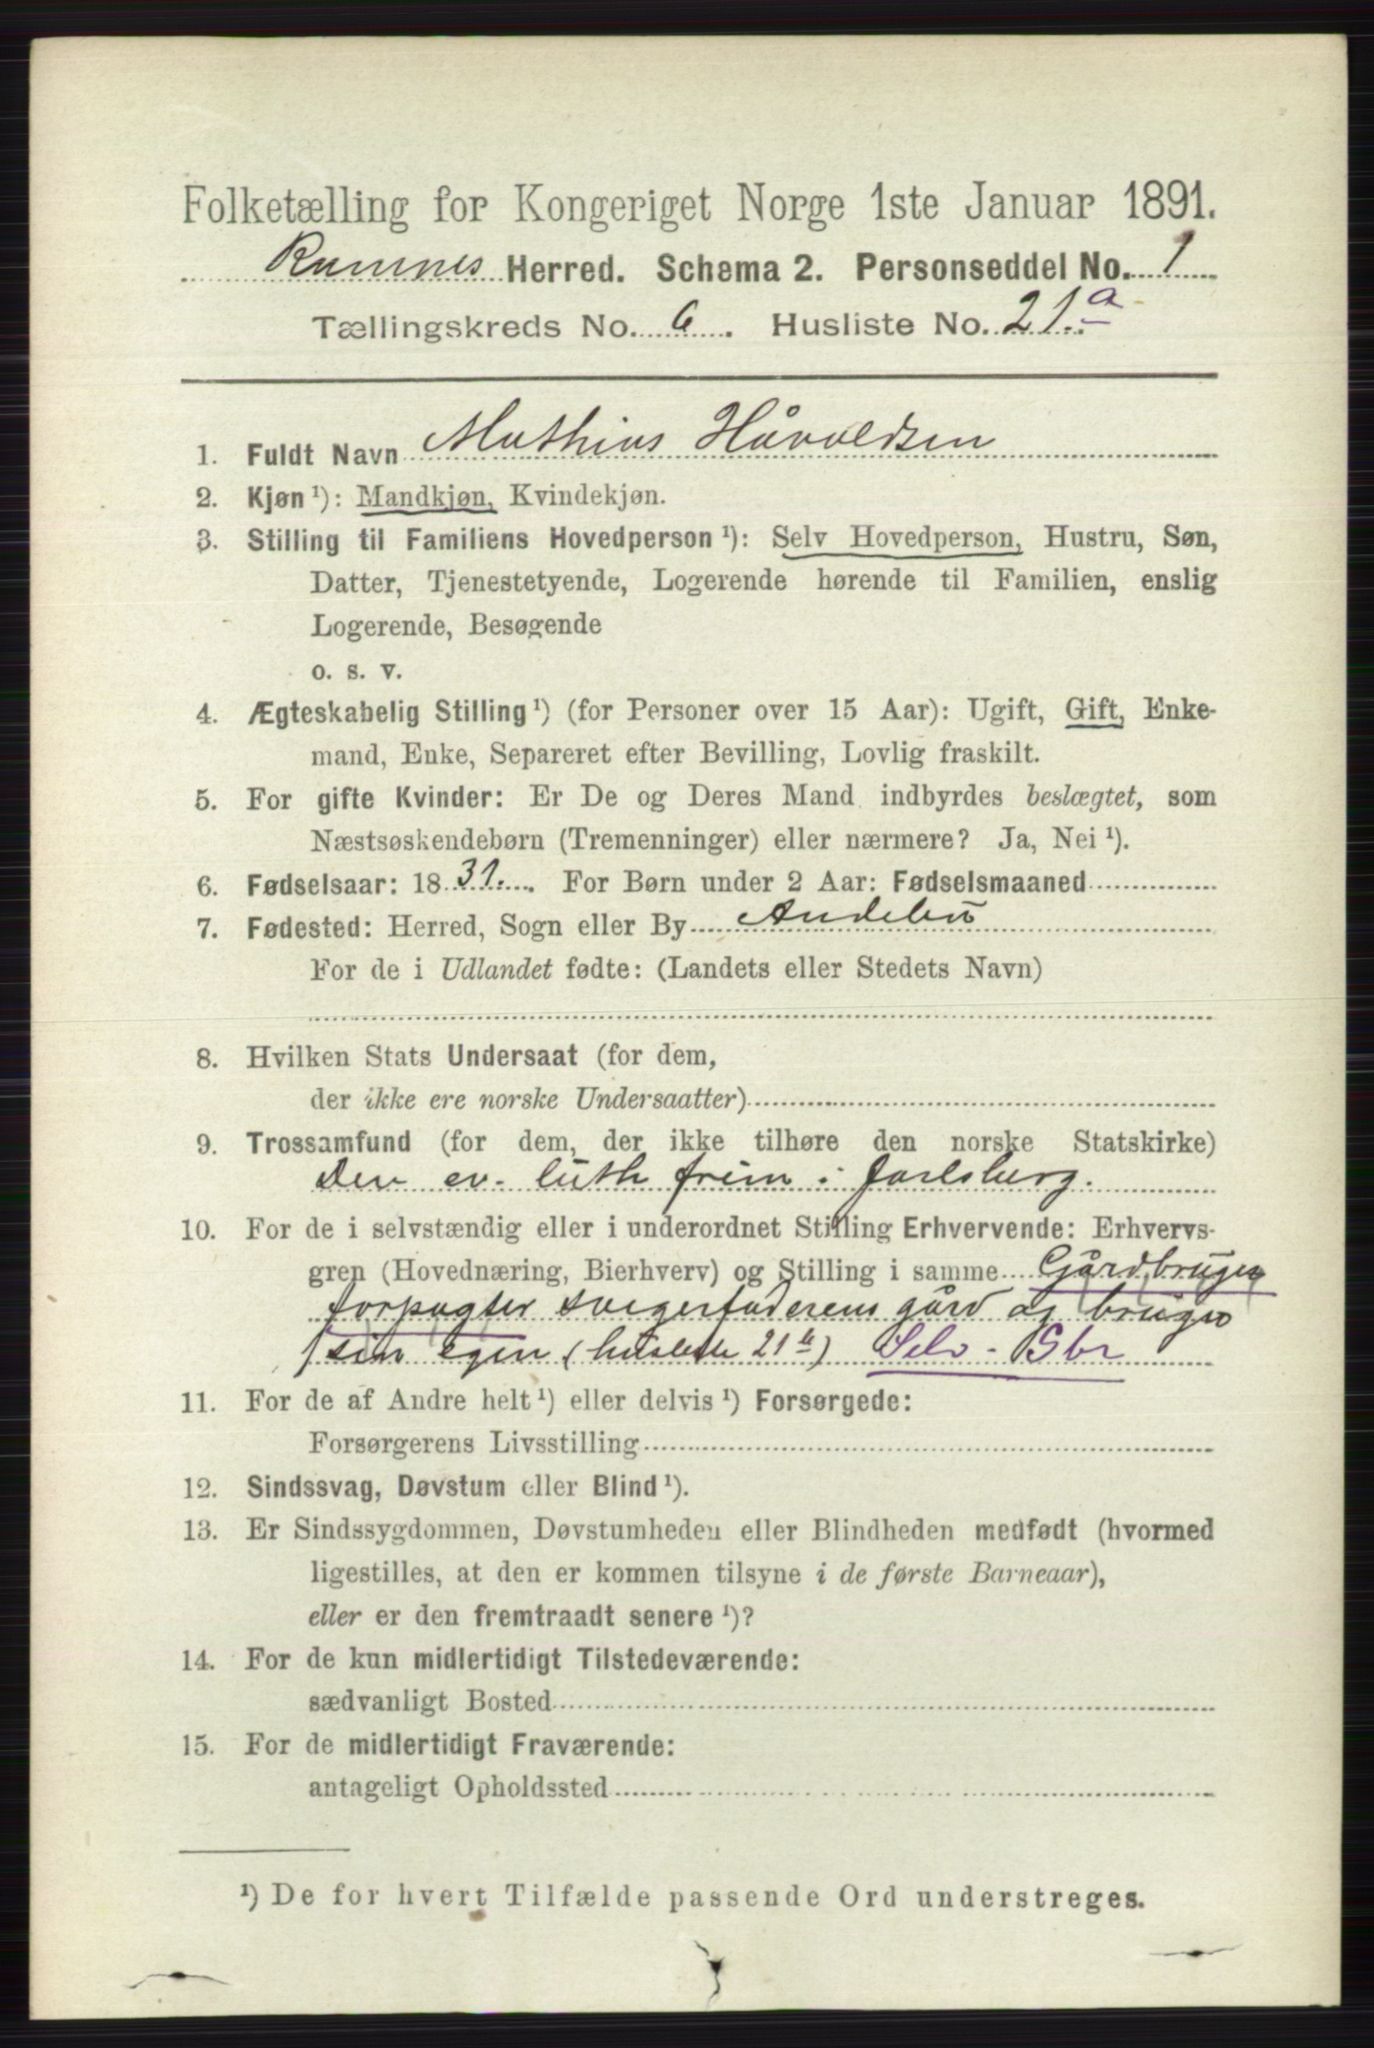 Folketælling for Kongeriget Norge 1ste Januar 1891.
Ramnes Herred. Schema 2. Personseddel No. 1
Tællingskreds No. 6. Husliste No. 21.a
1. Fuldt Navn Mathias Håvaldsen
2. Kjøn ¹): Mandkjøn, Kvindekjøn.
3. Stilling til Familiens Hovedperson ¹): Selv Hovedperson, Hustru, Søn,
Datter, Tjenestetyende, Logerende hørende til Familien, enslig
Logerende, Besøgende
o. s. v.
4. Ægteskabelig Stilling ¹) (for Personer over 15 Aar): Ugift, Gift, Enke-
mand, Enke, Separeret efter Bevilling, Lovlig fraskilt.
5. For gifte Kvinder: Er De og Deres Mand indbyrdes beslægtet, som
Næstsøskendebørn (Tremenninger) eller nærmere? Ja, Nei ¹).
6. Fødselsaar: 1831. For Børn under 2 Aar: Fødselsmaaned
7. Fødested: Herred, Sogn eller By Andebu
For de i Udlandet fødte: (Landets eller Stedets Navn)
8. Hvilken Stats Undersaat (for dem,
der ikke ere norske Undersaatter)
9. Trossamfund (for dem, der ikke tilhøre den norske Statskirke)
Den ev. luth frim i Jarlsberg.
10. For de i selvstændig eller i underordnet Stilling Erhvervende: Erhvervs-
gren (Hovednæring, Bierhverv) og Stilling i samme Gårdbruger
forpagter svigerfaderens gård og bruger
sin egen (husliste 21 b) Selv - Gbr
11. For de af Andre helt ¹) eller delvis ¹) Forsørgede:
Forsørgerens Livsstilling
12. Sindssvag, Døvstum eller Blind ¹).
13. Er Sindssygdommen, Døvstumheden eller Blindheden medfødt (hvormed
ligestilles, at den er kommen tilsyne i de første Barneaar),
eller er den fremtraadt senere ¹)?
14. For de kun midlertidigt Tilstedeværende:
sædvanligt Bosted
15. For de midlertidigt Fraværende:
antageligt Opholdssted
¹) De for hvert Tilfælde passende Ord understreges.